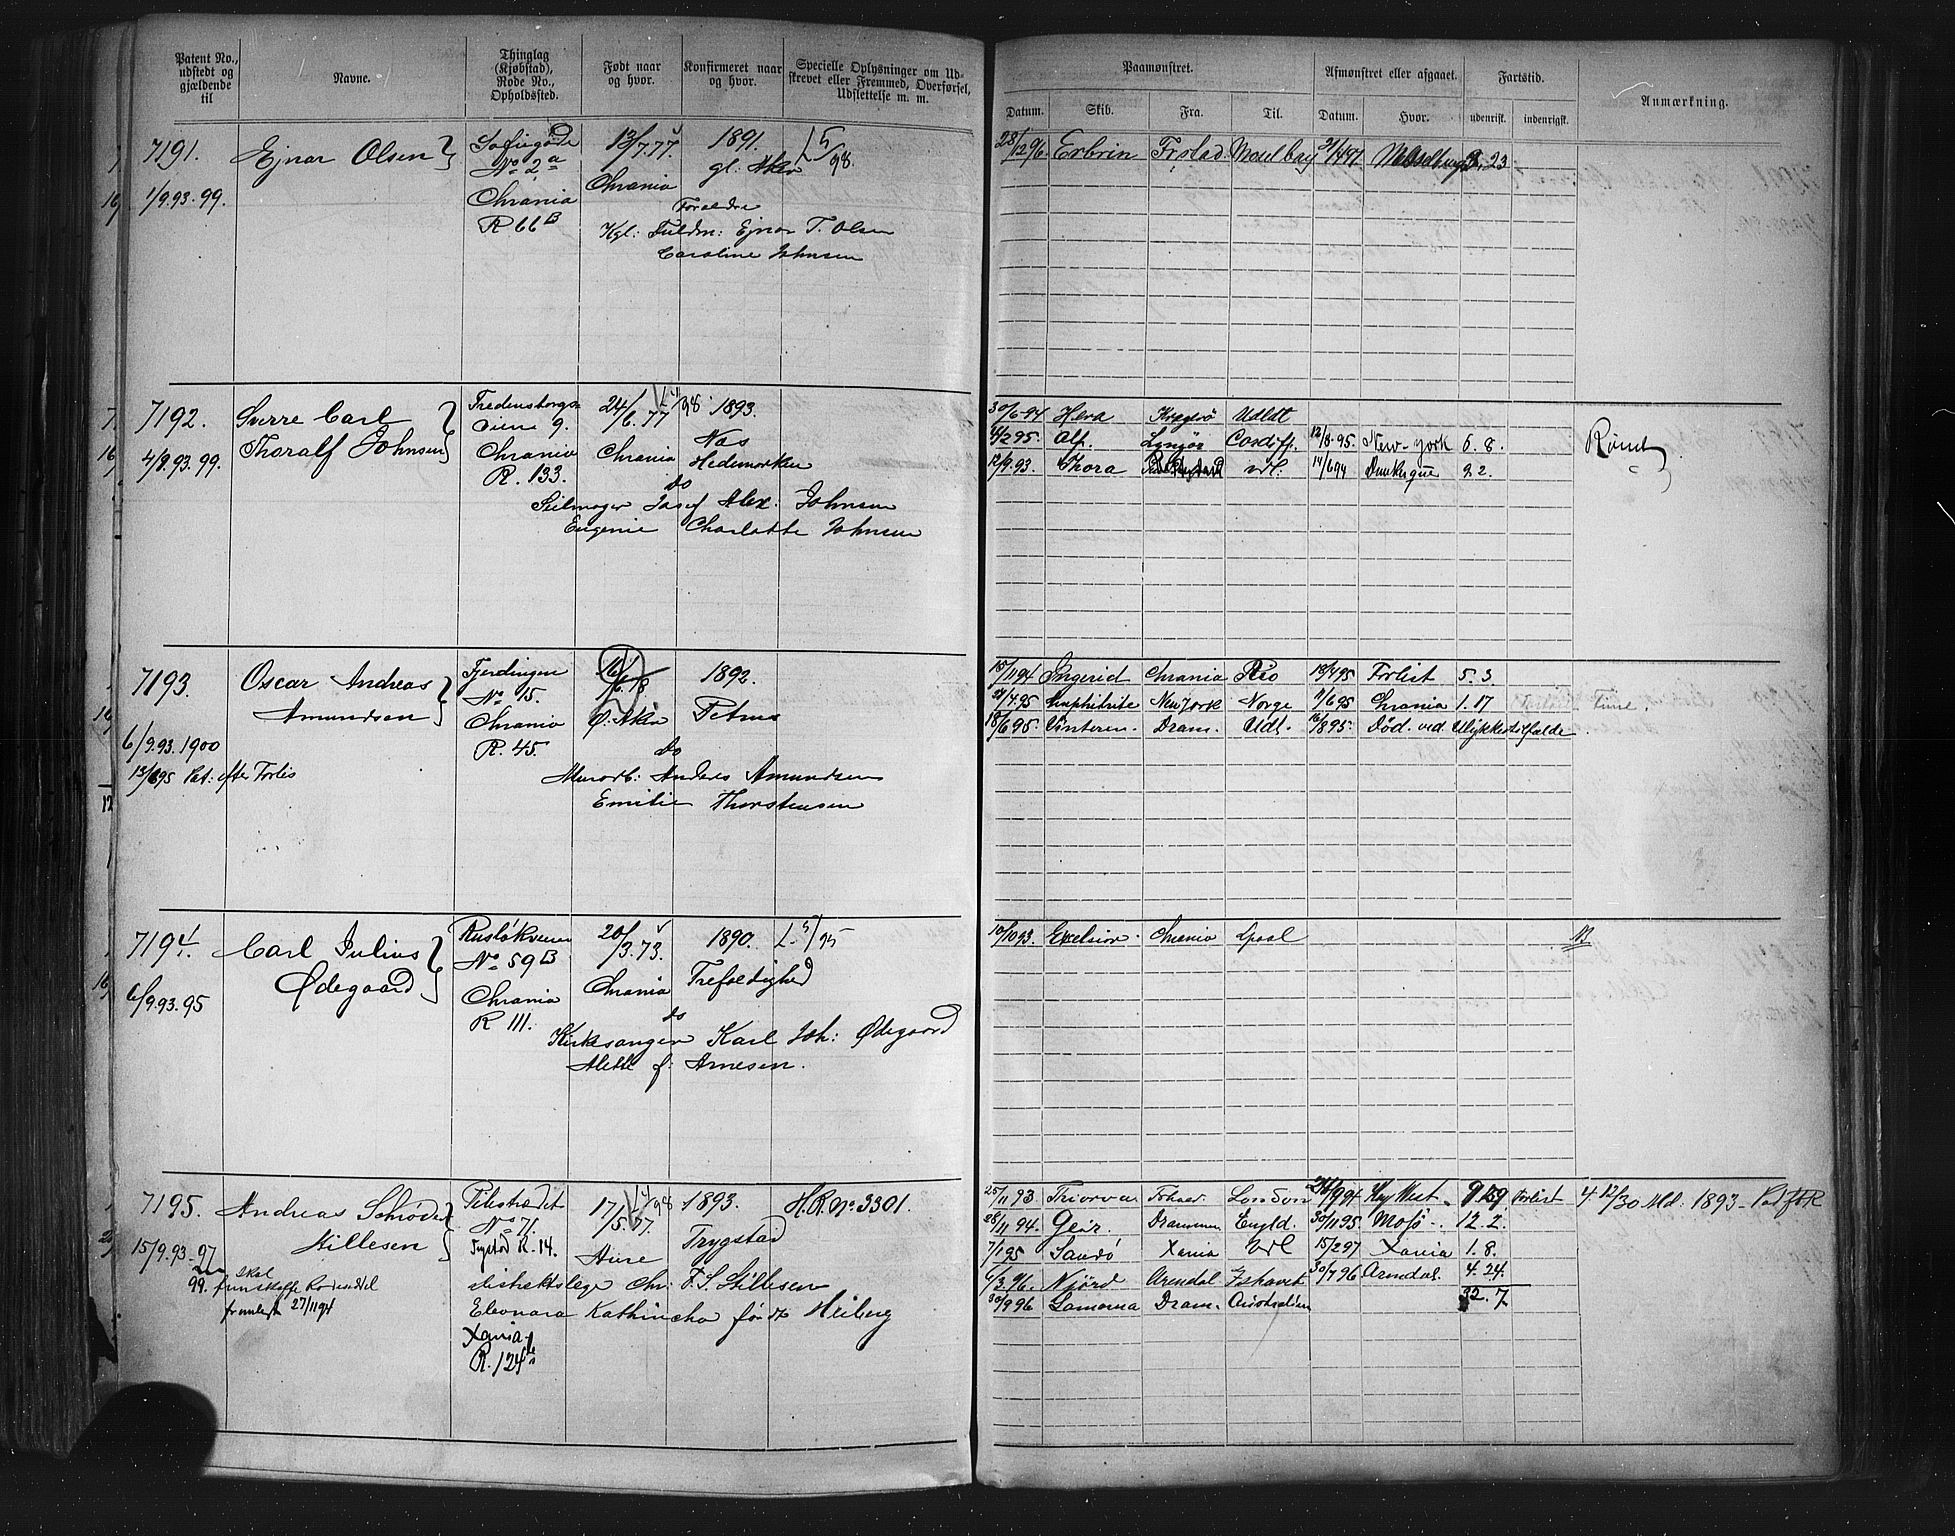 Patent No., udstedt og gjældende til
Navne.
Thinglag (Kjøbstad), Rode No., Opholdssted.
Født naar og hvor.
Konfirmeret naar og hvor.
Specielle Oplysninger om Udskrevet eller Fremmed, Overførsel, Udslettelse m. m.
Paamønstret.
Datum.
Skib.
Fra.
Til.
Afmønstret eller afgaaet.
Datum.
Hvor.
Fartstid.
udenrigsk.
indenrigsk.
Anmærkning.
7191.
1/9.93.99.
Ejnar Olsen
No 2a
Chrania
R 66 B
13/7.77.
Chrania
1891.
gl: Aker
L 5/98.
Foraldre
Kgl: Fuldm: Ejnar T. Olsen
Caroline Johnsen
28/12 96 Erbrin Frstad Mosel bay 21/4 97
7192.
4/9.93.99.
Sverre Carl
Thoralf Johnsen
Fredensborgs
veien 9.
Chrania
R. 133.
24/6.77
Chrania
1893.
Nas
Hedemarken
do
Seilmager Josef Alex. Johnsen
Eugenie Charlotte Johnsen
30/6 94 Hera Kragerø Udldt
Alf. Lyngør Cardiff. 12/8.95. New-York 6. 8.
12/9.93. Thora Udl. 14/6 94 Dunkerque 9 2.
Rømt
7193.
6/9.93.1900
13/6 95 Pat: efter Forlis
Oscar Andreas
Amundsen
Fjerdingen
No 15.
Chrania
R. 45.
16/6.78
Ø. Aker
1892.
Petrus
do
Murarb: Anders Amundsen
Emilie Thorstensen
15/11 94 Ingerid Chrania Rio 18/4 95 Forlist 5. 3
21/4.95 Amphitrite New York Norge 11/6 95 Chrania 1. 17
18/6 95. Dram. Udl. 16/8 95. Død. ved. Ulykkestilfælde
7194.
6/9.93.95
Carl Julius
Ødegaard
Ruseløkveien
No 59 B
Chrania
R 111.
20/3.73.
Chrania
1890.
Trefoldighed
L. 5/95
do
Kirkesanger Karl Joh: Ødegaard
Alette f. Arnesen.
10/10 93. Excelsior. Chrania
7195.
15/9.93-97
99.
skal
27/11 94
Andreas Schrøder
Killesen
Pilestrædet
No 71.
Trygstad R. 14.
17/5.77.
1893.
Trygstad
H.R. No. 3301.
distriktslæge Chr. F. S. Killesen
Eleonora Kathincha født Heiberg
Xania.
R. 124
25/11 93 London 26/9 94 Key West Forlist 4 12/30 Md. 1893
28/11 94. Geir. Drammen Engld. 30/11 95 Moss 12. 2.
7/1 95 Sandø Xania Udl 15/2 97 Xania 1. 8.
6/3 96. Njörd Arendal Ishavet 30/7 96 Arendal. 4. 24.
30/9 96 Dram. Australien 32. 7